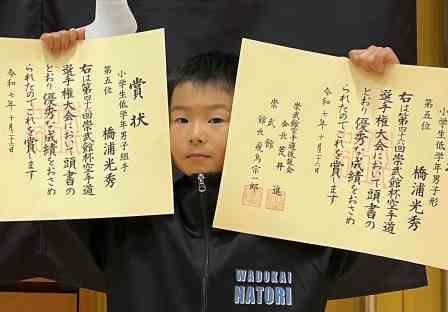 賞状
小学生低学年男子組手
第五位
橋浦光秀
右は第四十六回崇武館杯空手道
選手権大会において頭書の
とおり優秀な成績をおさめ
られたのでこれを賞します
令和七年十月二十六日
小学生低学年男子形
第五位
橋浦光秀
右は第四十六回崇武館杯空手道
選手権大会において頭書の
とおり優秀な成績をおさめ
られたのでこれを賞します
崇武館空手道後援会
会長 荒井
崇武館
館長 飛鳥宗一郎
WADOKAI
NATORI